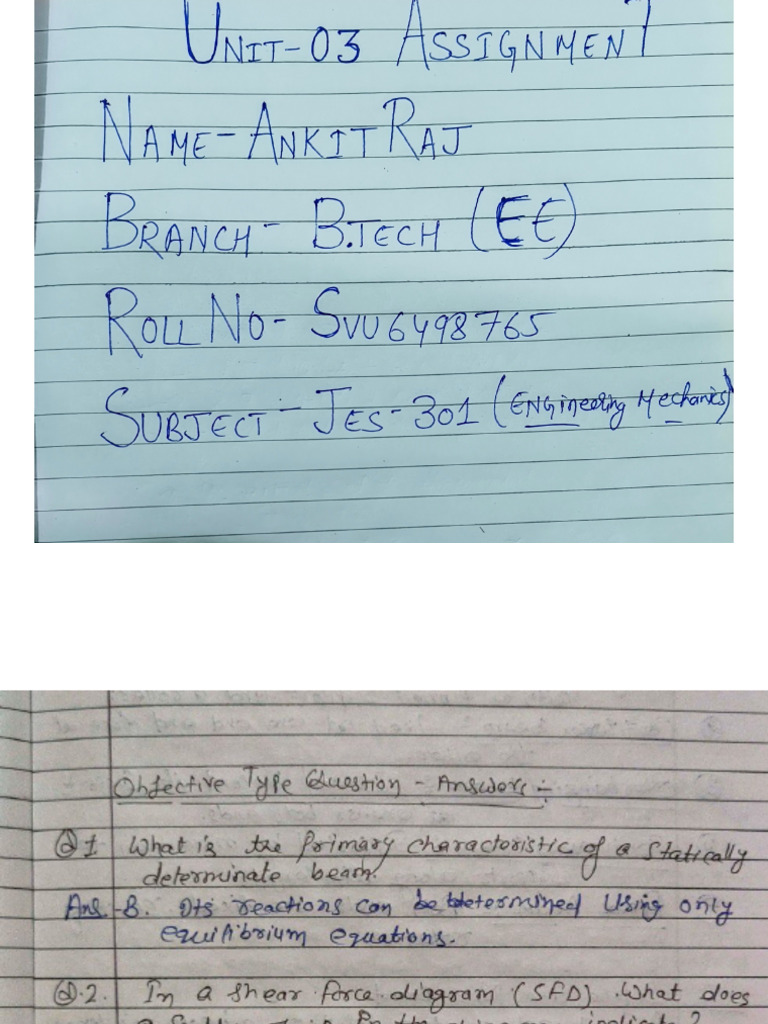 UNIT-03 ASSIGNMENT
NAME-ANKIT RAJ
BRANCH- B.TECH (EE)
ROLL NO- SVU6498765
SUBJECT- JES-301 (ENGineering Mechanics)
Objective Type Question - Answers :-
Q1 What is the Primary characteristic of a Statically
determinate beam.
Ans -B. Its reactions can be determined Using only
equilibrium equations.
Q.2. In a shear force diagram (SFD). What does
indicate?